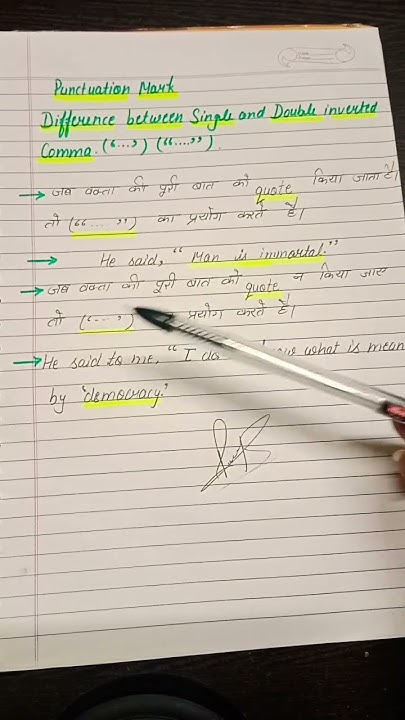 Punctuation Mark
Difference between Single and Double inverted
Comma. (‘...’) (“....”).
→ जब वक्ता की पूरी बात को quote किया जाता है।
तो (“....”) का प्रयोग करते है।
→ He said, “Man is immortal.”
→ जब वक्ता की पूरी बात को quote न किया जाए
तो (‘...’) प्रयोग करते है।
→ He said to me, “I do what is mean
by ‘democracy.’